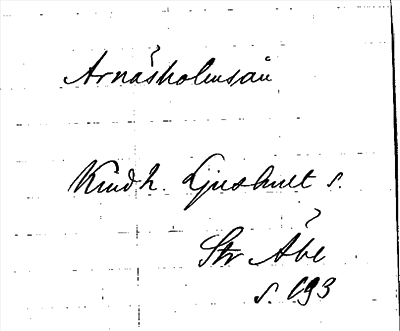 Arnåsholmsån
Kind h. Ljushult s.
Str Åbl
s. 193